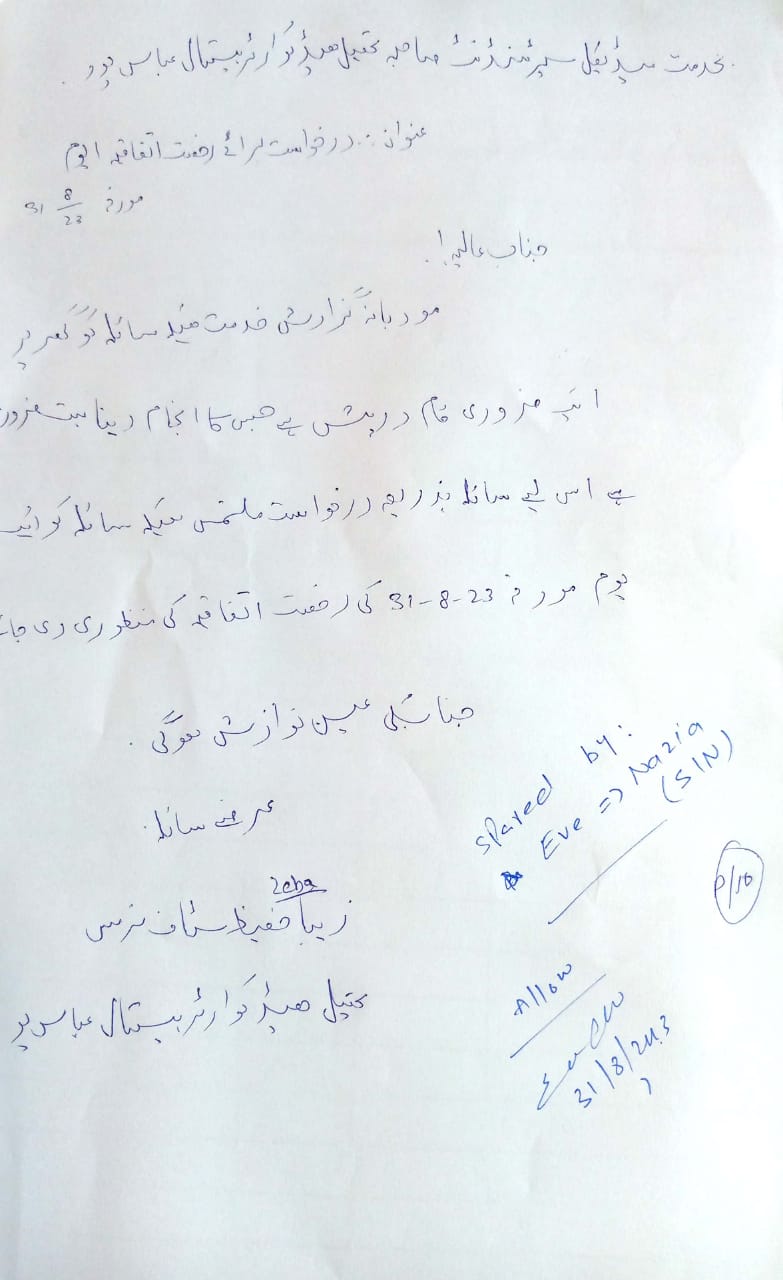 بخدمت میڈیکل سپرنٹنڈنٹ صاحبہ تحصیل ہیڈ کوارٹر ہسپتال عباس پور۔
عنوان:۔ درخواست برائے رخصت اتفاقیہ ایوم
مورخہ 31 8/23
جناب عالیہ!
مودبانہ گزارش خدمت ہیکہ سائلہ کو گھر پر
ایک ضروری کام درپیش ہے جس کا انجام دینا بہت ضرور
ہے اس لیے سائلہ بذریعہ درخواست ملتمس ہیکہ سائلہ کو ایک
یوم مورخہ 31-8-23 کی رخصت اتفاقیہ کی منظوری دی جائے
جناب کی عین نوازش ہوگی۔
عرضے سائلہ
Zeba
زیبا حفیظ سٹاف نرس
تحصیل ہیڈ کوارٹر ہسپتال عباس پور
Spared by:
Eve => Nazia
(SIN)
P/10
Allow
31/8/2023